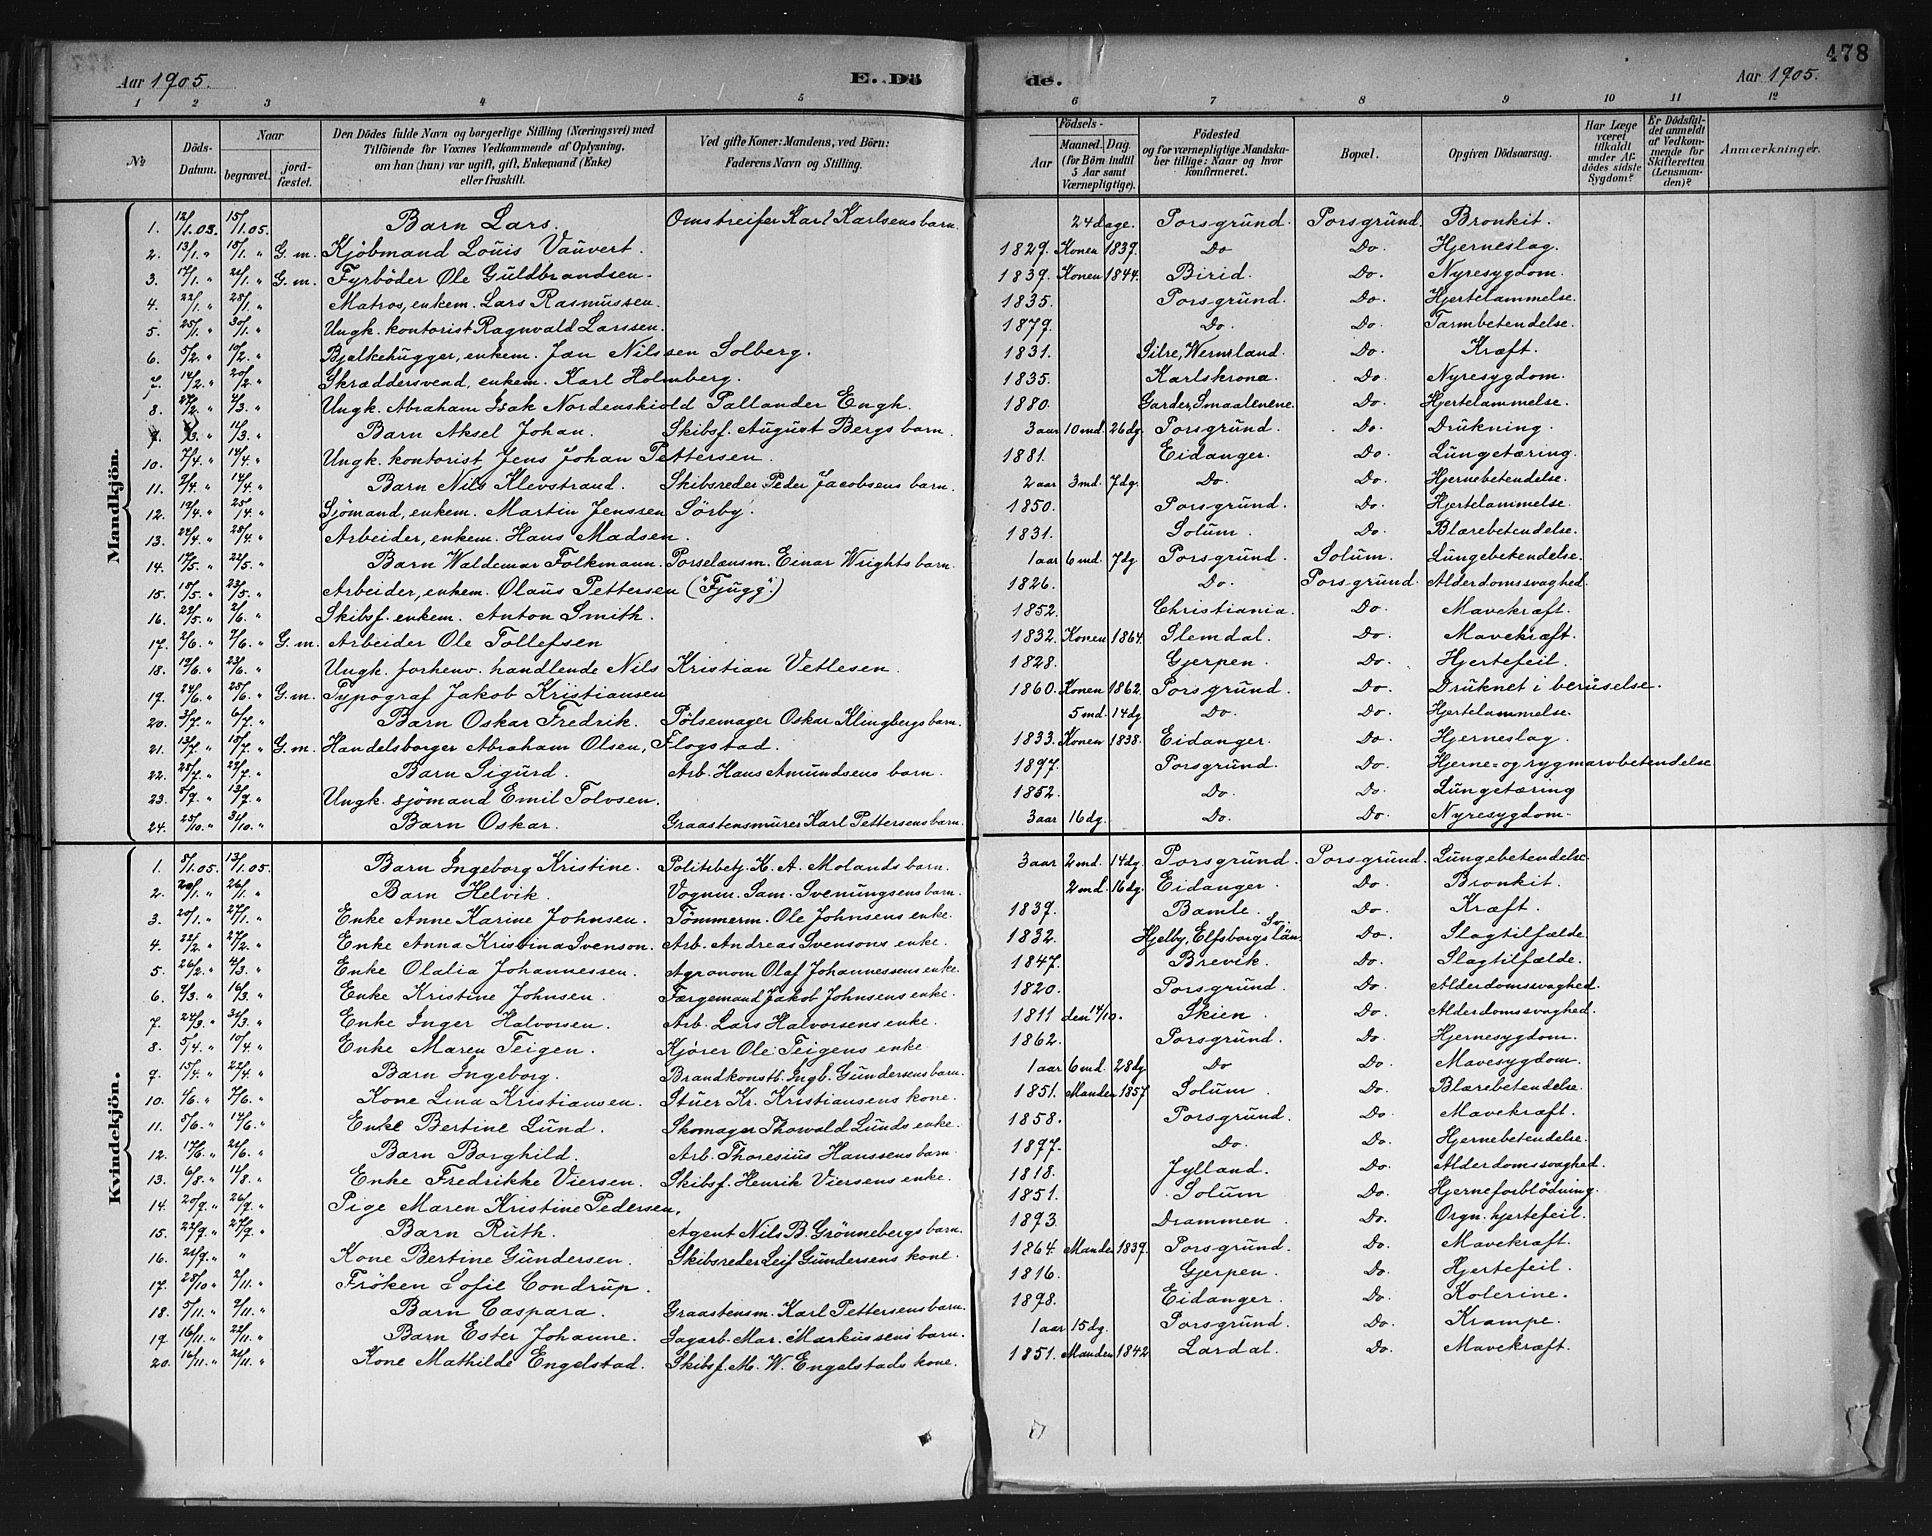 478
Aar 1905. E. Dö de. Aar 1905.
1 2 3 4 5 6 7 8 9 10 11 12
No
Döds-Datum.
Naar begravet. jordfæstet.
Den Dödes fulde Navn og borgerlige Stilling (Næringsvei) med Tilföiende for Voxnes Vedkommende af Oplysning, om han (hun) var ugift, gift, Enkemand (Enke) eller fraskilt.
Ved gifte Koner: Mandens, ved Börn: Faderens Navn og Stilling.
Födsels- Aar Maaned. Dag. (for Börn indtil 5 Aar samt Værnepligtige).
Födested og for værnepligtige Mandskaber tillige: Naar og hvor konfirmeret.
Bopæl.
Opgiven Dödsaarsag.
Har Læge været tilkaldt under Afdödes sidste Sygdom?
Er Dödsfaldet anmeldt af Vedkommende for Skifteretten (Lensmanden)?
Anmærkninger.
Mandkjön.
1. 12/1.05. 15/1.05. Barn Lars. Omstreifer Karl Karlsens barn. 24 dage. Porsgrund. Porsgrund. Bronkit.
2. 13/1. " 15/1. " G. m. Kjöbmand Louis Vauvert. 1829. Konen 1839. Do Do. Hjerneslag.
3. 17/1. " 21/1. " G. m. Fyrböder Ole Guldbrandsen. 1839. Konen 1844. Birid. Do. Nyresygdom.
4. 22/1. " 28/1. " Matros, enkem. Lars Rasmussen. 1835. Porsgrund. Do. Hjertelammelse.
5. 25/1. " 30/1. " Ungk. kontorist Ragnvald Larssen. 1879. Do. Do. Tarmbetendelse.
6. 5/2. " 10/2. " Bjalkehugger, enkem. Jan Nilssen Solberg. 1831. Silre, Wermland. Do. Kræft.
7. 14/2. " 20/2. " Skræddersvend, enkem. Karl Holmberg. 1835. Karlskrona. Do. Nyresygdom.
8. 27/2. " 4/3. " Ungk. Abraham Isak Nordenskiold Pallander Engh. 1880. Garder, Smaalenene. Do. Hjertelammelse.
9. /3. " 11/3. " Barn Aksel Johan. Skibsf. August Bergs barn. 3 aar 10 md. 26 dg. Porsgrund. Do. Drukning.
10. 7/4. " 14/4. " Ungk. kontorist Jens Johan Pettersen. 1881. Eidanger. Do. Lungetæring.
11. 9/4. " 14/4. " Barn Nils Klevstrand. Skibsreder Peder Jacobsens barn. 2 aar 3 md. 7 dg. Do. Do. Hjernebetendelse.
12. 19/4. " 25/4. " Sjömand, enkem. Martin Jenssen Sörby. 1850. Porsgrund. Do. Hjertelammelse.
13. 24/4. " 28/4. " Arbeider, enkem. Hans Madsen. 1831. Solum. Do. Blærebetendelse.
14. 17/5. " 22/5. " Barn Waldemar Folkmann. Porselænsm. Einar Wrights barn. 1 aar 6 md. 7 dg. Porsgrund. Solum. Lungebetendelse.
15. 18/5. " 23/5. " Arbeider, enkem. Olaus Pettersen ("Fjugg".) 1826. Do. Porsgrund. Alderdomssvaghed.
16. 22/5. " 2/6. " Skibsf. enkem. Anton Smith. 1852. Christiania. Do. Mavekræft.
17. 2/6. " 7/6. " G. m. Arbeider Ole Tollefsen 1832. Konen 1864. Slemdal. Do. Mavekræft.
18. 19/6. " 23/6. " Ungk. forhenv. handlende Nils Kristian Vetlesen 1828. Gjerpen. Do. Hjertefeil.
19. 24/6. " 28/6. " G. m. Typograf Jakob Kristiansen 1860. Konen 1862. Porsgrund. Do. Druknet i beruselse.
20. 3/7. " 6/7. " Barn Oskar Fredrik. Pölsemager Oskar Klingbergs barn. 5 md. 14 dg Do. Do. Hjertelammelse.
21. 13/7. " 18/7. " G. m. Handelsborger Abraham Olsen, Flogstad. 1833. Konen 1838. Eidanger. Do. Hjerneslag.
22. 25/7. " 29/7. " Barn Sigurd. Arb. Hans Amundsens barn. 1897. Porsgrund. Do. Hjerne= og rygmarvbetendelse
23. 5/9. " 13/9. " Ungk. sjömand Emil Tolvsen. 1852. Do. Do. Lungetæring
24. 25/10. " 31/10. " Barn Oskar. Graastensmurer Karl Pettersens barn. 3 aar 16 dg. Do. Do. Nyresygdom.
Kvindekjön.
1. 8/1.05. 13/1.05. Barn Ingeborg Kristine. Politibetj. K. A. Molands barn. 3 aar 2 md. 14 dg. Porsgrund. Porsgrund. Lungebetendelse
2. 20/1. " 26/1. " Barn Helvik. Vognm. Sam. Svenungsens barn. 2 md. 16 dg. Eidanger. Do. Bronkit.
3. 20/1. " 27/1. " Enke Anne Karine Johnsen. Tömmerm. Ole Johnsens enke. 1839. Bamle. Do. Kræft.
4. 22/2. " 27/2. " Enke Anna Kristina Svenson. Arb. Andreas Svensons enke. 1832. Hjelby, Elfsborgs län Sv. Do. Slagtilfælde
5. 26/2. " 4/3. " Enke Olalia Johannessen. Agronom Olaf Johannessens enke. 1847. Brevik. Do. Slagtilfælde.
6. 9/3. " 16/3. " Enke Kristine Johnsen. Færgemand Jakob Johnsens enke. 1820. Porsgrund. Do. Alderdomssvaghed.
7. 24/3. " 31/3. " Enke Inger Halvorsen. Arb. Lars Halvorsens enke. 1811 den 14/10. Skien. Do. Alderdomssvaghed.
8. 5/4. " 10/4. " Enke Maren Teigen. Kjører Ole Teigens enke 1862. Porsgrund. Do. Hjernesygdom.
9. 15/4. " 22/4. " Barn Ingeborg. Brandkonstb. Ingb. Gundersens barn. 1 aar 6 md. 28 dg. Do Do. Mavesygdom.
10. 4/6. " 7/6. " Kone Lina Kristiansen. Stuer Kr. Kristiansens kone. 1851. Manden 1857. Solum. Do. Blærebetendelse.
11. 8/6. " 14/6. " Enke Bertine Lund. Skomager Thorvald Lunds enke. 1858. Porsgrund. Do. Mavekræft.
12. 17/6. " 22/6. " Barn Borghild. Arb. Thoresius Hanssens barn. 1897. Do. Do. Hjernebetendelse.
13. 6/8. " 11/8. " Enke Fredrikke Viersen. Skibsf. Henrik Viersens enke. 1818. Jylland. Do. Alderdomssvaghed.
14. 20/9. " 26/9. " Pige Maren Kristine Pedersen. 1851. Solum Do. Hjerneforblödning.
15. 22/9. " 27/9. " Barn Ruth. Agent Nils B. Grönnebergs barn. 1893. Drammen. Do. Orgn. hjertefeil.
16. 21/9. " " Kone Bertine Gundersen. Skibsreder Leif Gundersens kone. 1864. Manden 1839. Porsgrund. Do. Mavekræft.
17. 28/10 " 2/11. " Fröken Sofie Condrup. 1816. Gjerpen. Do. Hjertefeil.
18. 5/11. " 7/11. " Barn Caspara. Graastensm. Karl Pettersens barn. 1898. Eidanger. Do. Kolerine.
19. 16/11. " 22/11. " Barn Ester Johanne. Sagarb. Mar. Markussens barn. 1 aar 15 dg. Porsgrund. Do. Krampe.
20. 16/11. " 21/11. " Kone Mathilde Engelstad. Skibsf. M. W. Engelstads kone. 1851. Manden 1842. Lardal. Do. Mavekræft.